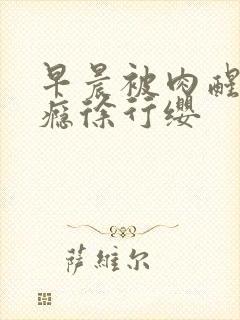 早晨被肉醒
瘾徐行缨
萨维尔